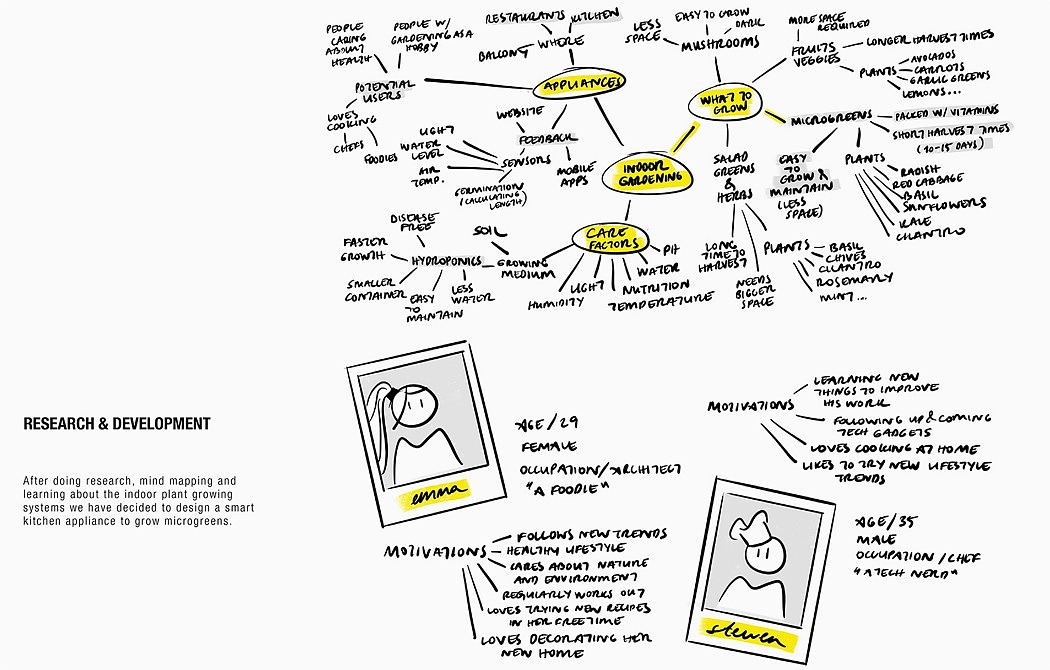 PEOPLE
CARING
ABOUT
HEALTH
PEOPLE W/
GARDENING AS A
HOBBY
POTENTIAL
USERS
LOVES
COOKING
CHEFS
FOODIES
RESTAURANTS
KITCHEN
BALCONY
WHERE
APPLIANCES
WEBSITE
FEEDBACK
MOBILE
APPS
SENSORS
LIGHT
WATER
LEVEL
AIR
TEMP.
GERMINATION
(CALCULATING
LENGTH)
INDOOR
GARDENING
LESS
SPACE
EASY TO GROW
DARK
MUSHROOMS
MORE SPACE
REQUIRED
FRUITS
VEGGIES
LONGER HARVEST TIMES
PLANTS
AVOCADOS
CARROTS
GARLIC GREENS
LEMONS...
WHAT TO
GROW
MICROGREENS
PACKED W/ VITAMINS
SHORT HARVEST TIMES
(10-15 DAYS)
EASY
TO
GROW &
MAINTAIN
(LESS
SPACE)
PLANTS
RADISH
RED CABBAGE
BASIL
SUNFLOWERS
KALE
CILANTRO
SALAD
GREENS
&
HERBS
LONG
TIME TO
HARVEST
NEEDS
BIGGER
SPACE
PLANTS
BASIL
CHIVES
CILANTRO
ROSEMARY
MINT...
CARE
FACTORS
PH
WATER
NUTRITION
TEMPERATURE
LIGHT
HUMIDITY
GROWING
MEDIUM
SOIL
HYDROPONICS
DISEASE
FREE
FASTER
GROWTH
SMALLER
CONTAINER
EASY
TO
MAINTAIN
LESS
WATER
RESEARCH & DEVELOPMENT
After doing research, mind mapping and
learning about the indoor plant growing
systems we have decided to design a smart
kitchen appliance to grow microgreens.
emma
AGE/29
FEMALE
OCCUPATION/ARCHITECT
"A FOODIE"
MOTIVATIONS
FOLLOWS NEW TRENDS
HEALTHY LIFESTYLE
CARES ABOUT NATURE
AND ENVIRONMENT
REGULARLY WORKS OUT
LOVES TRYING NEW RECIPES
IN HER FREE TIME
LOVES DECORATING HER
NEW HOME
MOTIVATIONS
LEARNING NEW
THINGS TO IMPROVE
HIS WORK
FOLLOWING UP & COMING
TECH GADGETS
LOVES COOKING AT HOME
LIKES TO TRY NEW LIFESTYLE
TRENDS
steven
AGE/35
MALE
OCCUPATION/CHEF
"A TECH NERD"